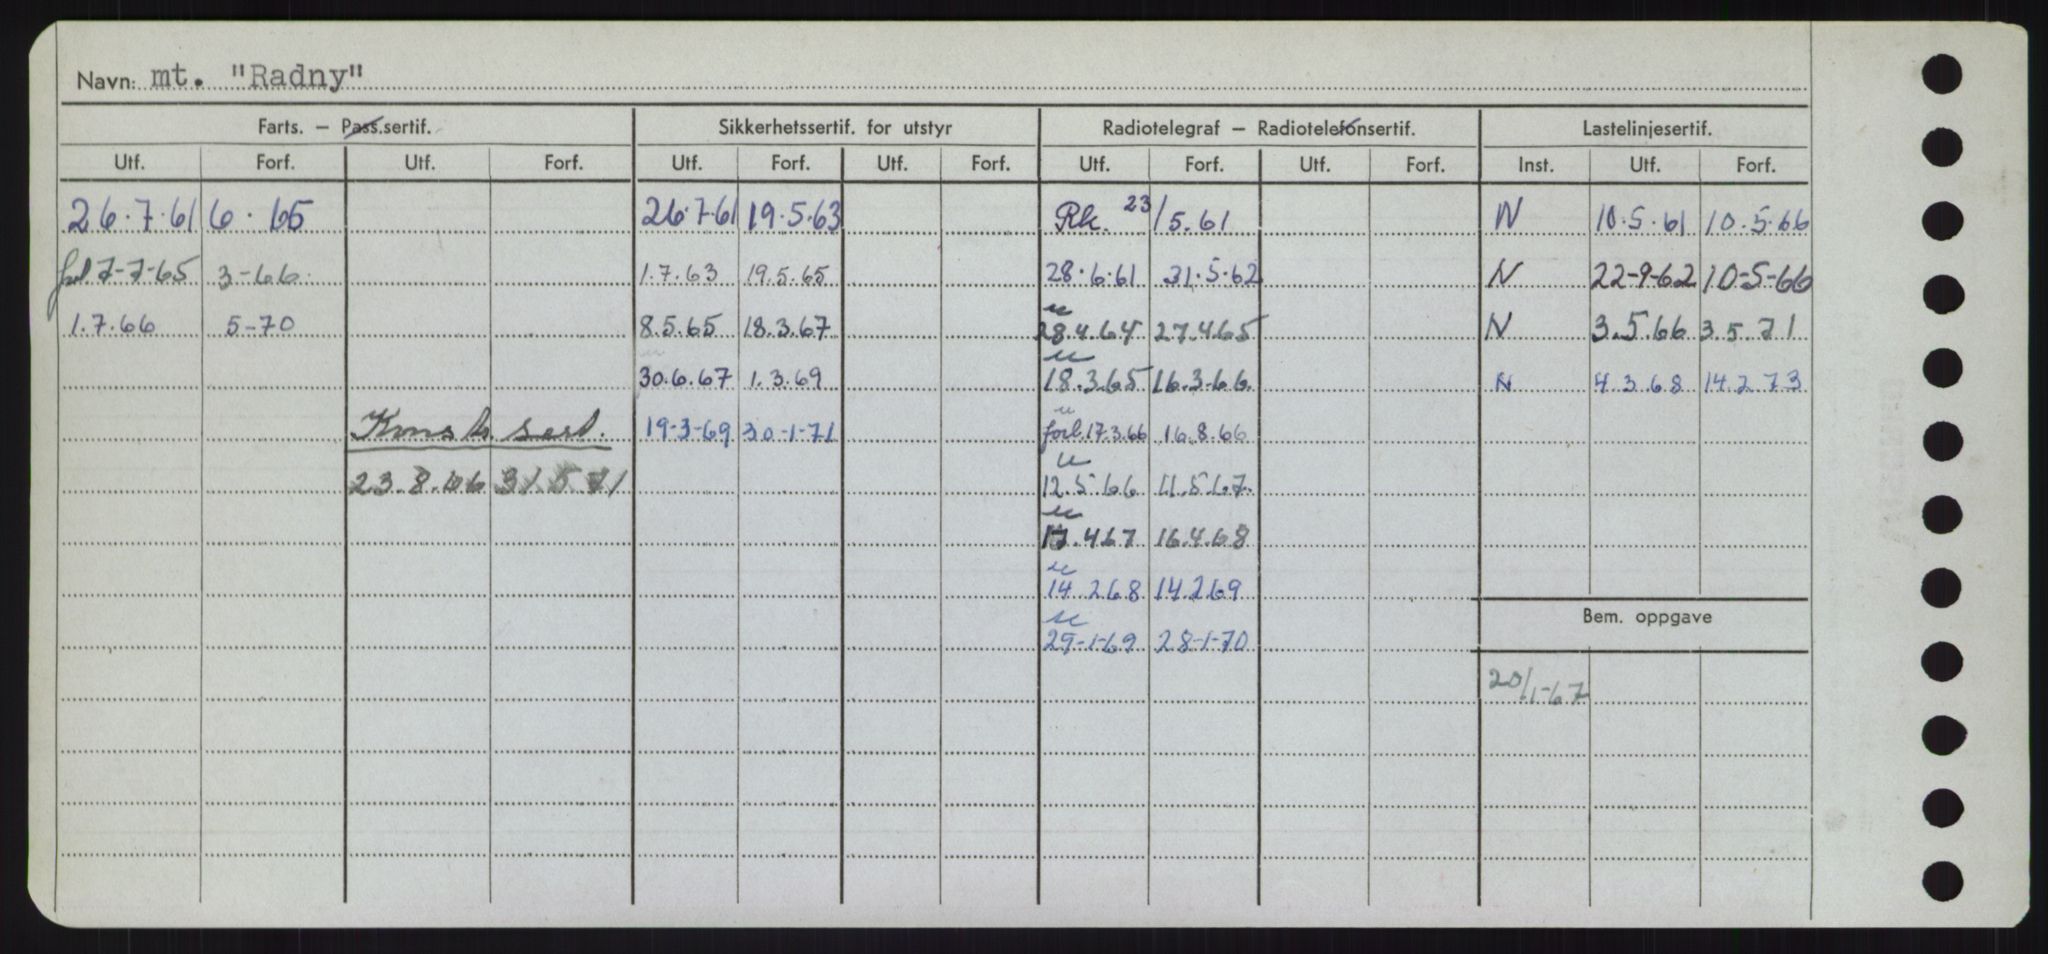 Navn: mt. "Radny"
Farts. – Pass.sertif. Sikkerhetssertif. for utstyr Radiotelegraf – Radiotelefonsertif. Lastelinjesertif.
Utf. Forf. Utf. Forf. Utf. Forf. Utf. Forf. Utf. Forf. Utf. Forf. Inst. Utf. Forf.
26.7.61 6.65 26.7.61 19.5.63 Rk. 23/5.61 N 10.5.61 10.5.66
7-7-65 3-66. 1.7.63 19.5.65 28.6.61 31.5.62 N 22-9-62 10-5-66
1.7.66 5-70 8.5.65 18.3.67 28.4.64 27.4.65 N 3.5.66 3.5.71
30.6.67 1.3.69 18.3.65 16.3.66 N 4.3.68 14.2.73
Konstr. sert. 19-3-69 30-1-71 forl. 17.3.66 16.8.66
23.8.66 31.5.71 12.5.66 11.5.67.
17.4.67 16.4.68
14.2.68 14.2.69
Bem. oppgave
29-1-69 28-1-70
20/1-67